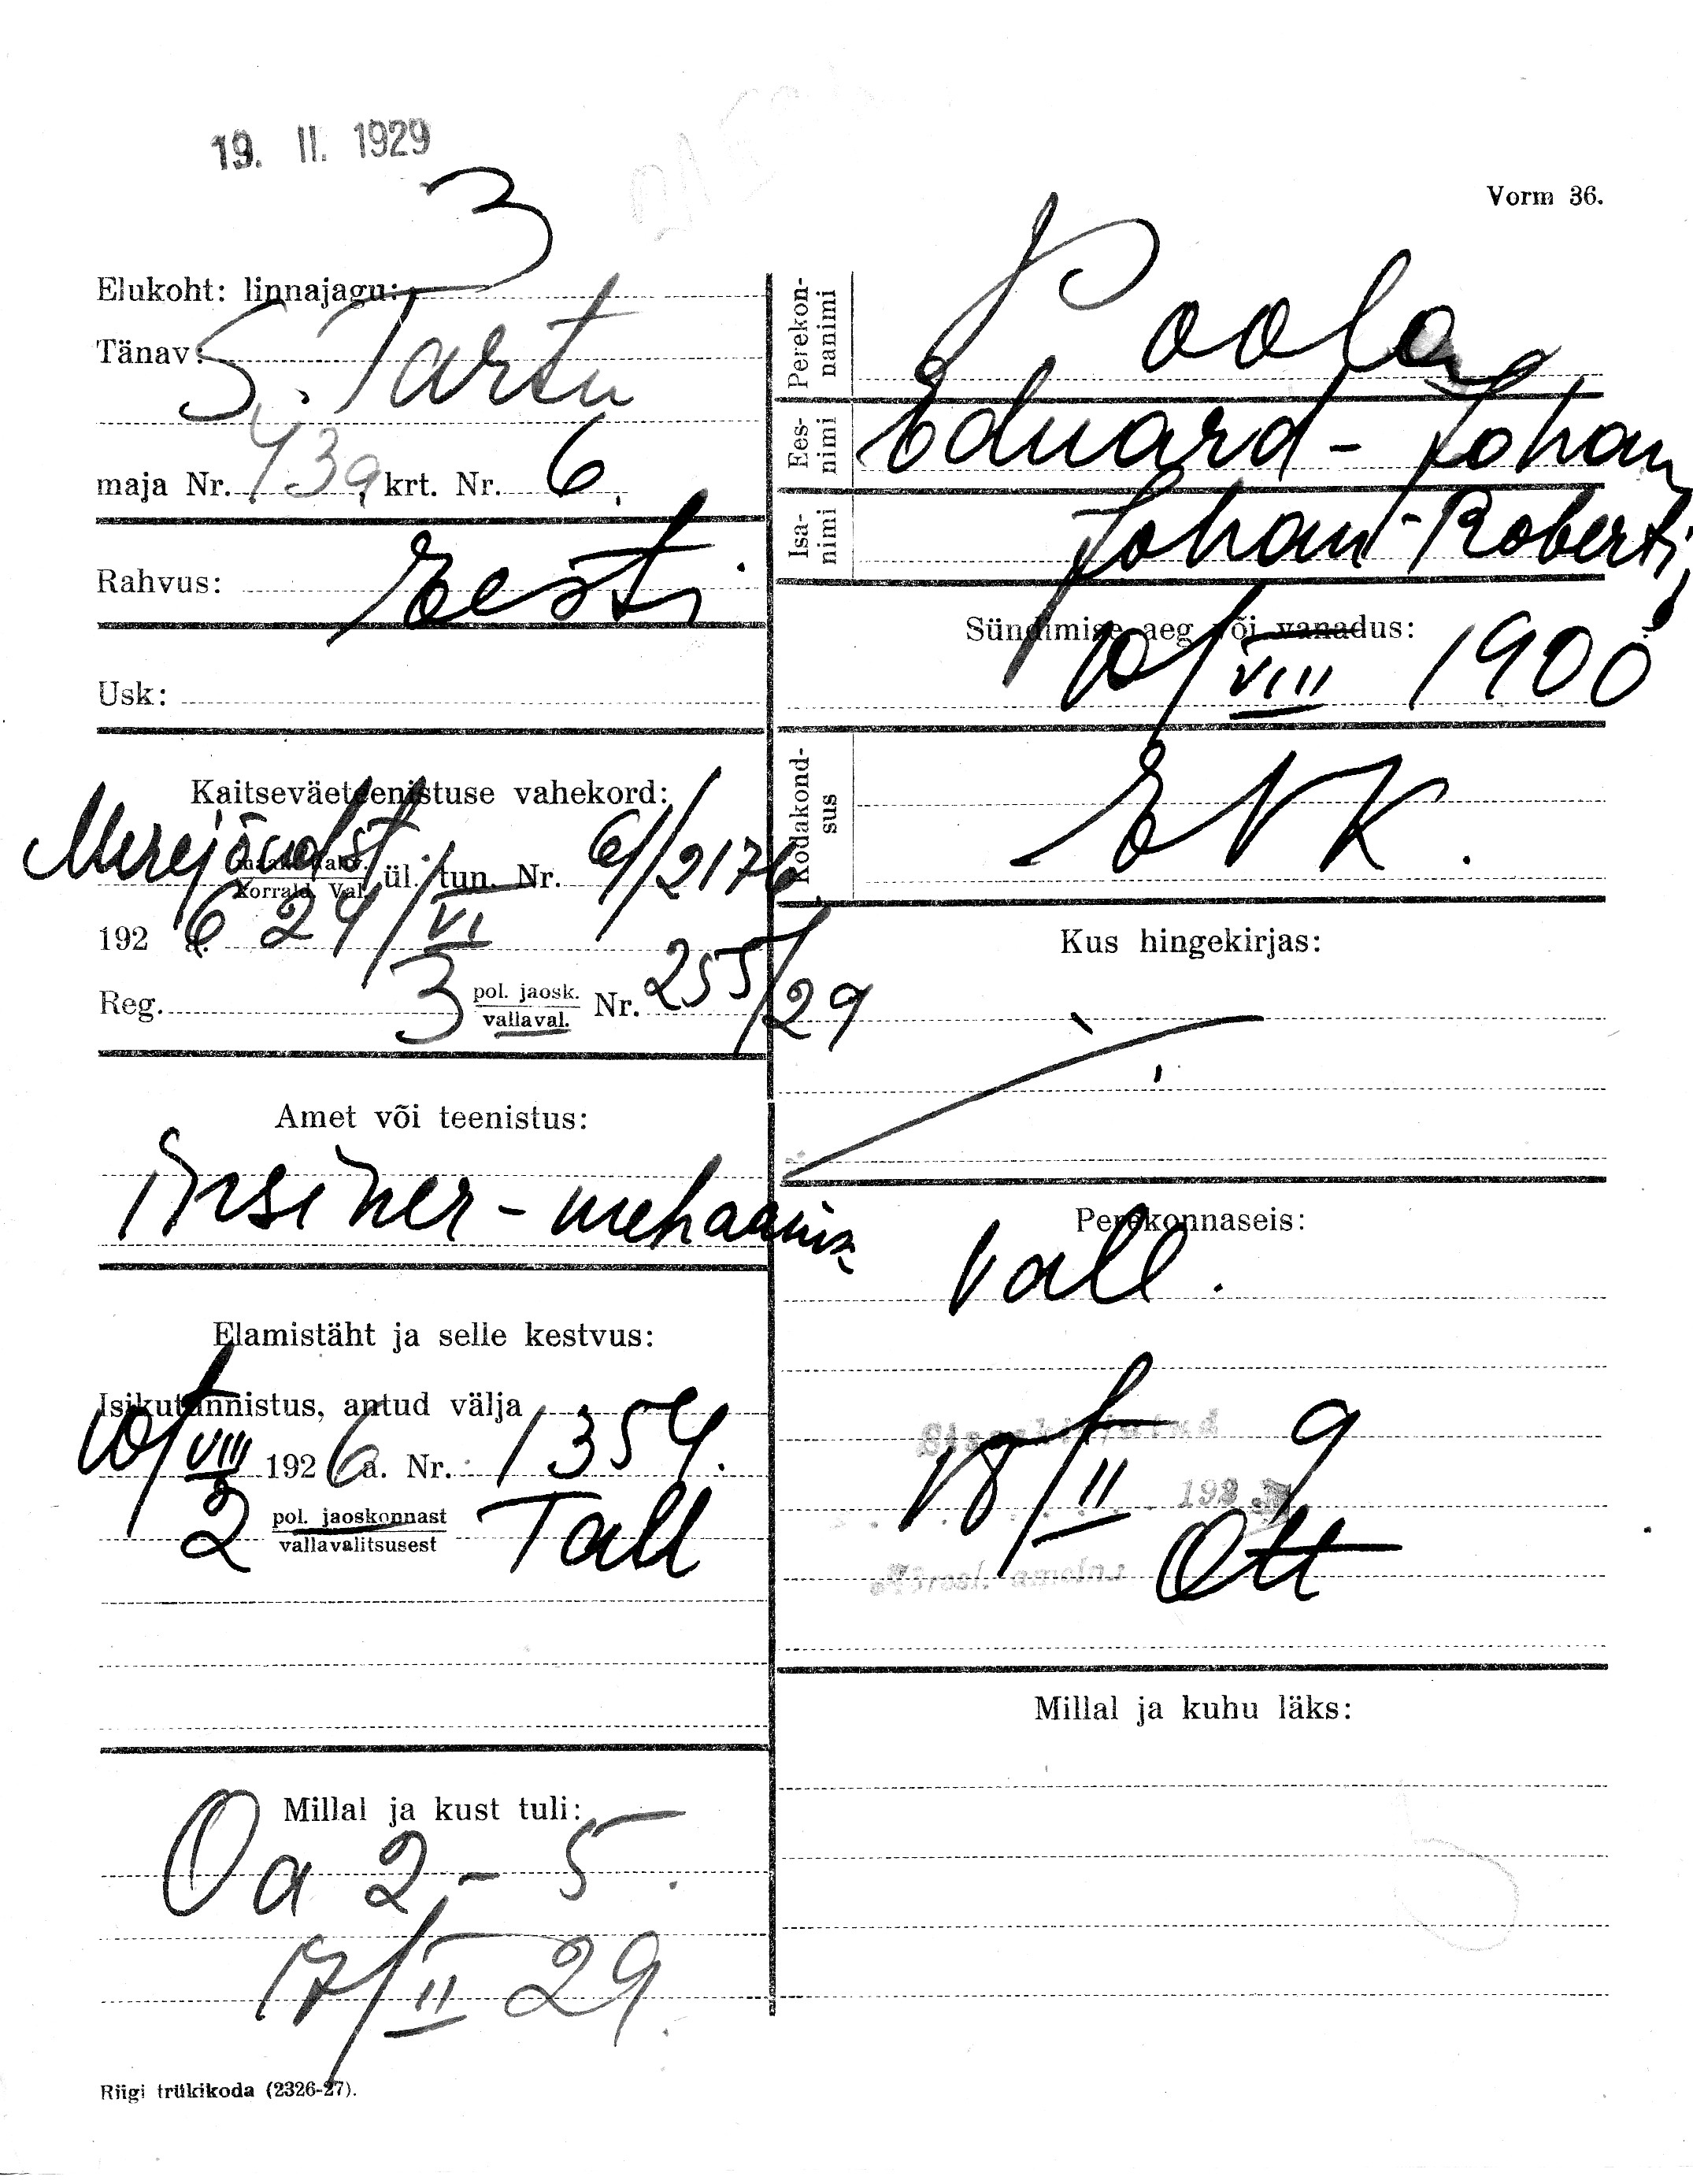 19. II. 1929
Vorm 36.
Elukoht: linnajagu: 3
Tänav: S. Tartu
maja Nr. 43a krt. Nr. 6.
Rahvus: Eesti
Usk:
Kaitseväeteenistuse vahekord:
Merejõudst ül. tun. Nr. 61/2176
Korrald. Val.
192 6 a. 24/VI
Reg. 3 pol. jaosk. Nr. 255/29
vallaval.
Amet või teenistus:
insener-mehaanik
Elamistäht ja selle kestvus:
Isikutunnistus, antud välja
10/VIII 192 6 a. Nr. 1354.
2 pol. jaoskonnast Tall
vallavalitsusest
Millal ja kust tuli:
Oa 2-5.
17/II 29.
Riigi trükikoda (2326-27).
Perekonnanimi Poola
Eesnimi Eduard-Johan
Isanimi Johan-Roberti
Sündimise aeg või vanadus:
10/VIII 1900
Kodakondsus EVK.
Kus hingekirjas:
Perekonnaseis:
Vall.
Sissekirjutatud
18/II 192 9
Ott
Millal ja kuhu läks: